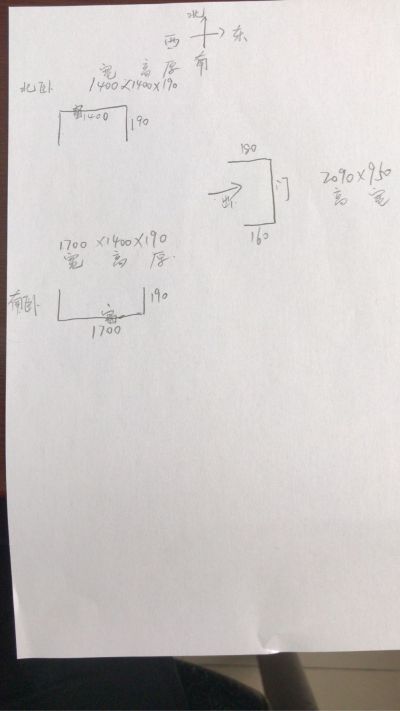 北
西 东
南
宽 高 厚
北卧 1400×1400×190
窗 1400 190
180
出 门 2090×950
高 宽
160
1700×1400×190
宽 高 厚
南卧 190
窗
1700